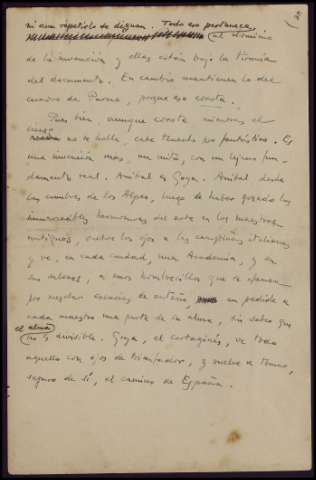 ni aun repetirlo se dignan. Todo eso pertenece
al dominio
de la invención y ellos están bajo la tiranía
del documento. En cambio mantienen lo del
cuadro de Parma, porque eso consta.
Pues bien, aunque consta mientras el
no se halla, cabe tenerlo por fantástico. Es
una invención más, un mito, con un lejano fun-
damento real. Aníbal es Goya. Aníbal desde
las cumbres de los Alpes, luego de haber gozado las
innumerables hermosuras del arte en los maestros
antiguos, vuelve los ojos a las campiñas italianas
y ve, en cada ciudad, una Academia, y en
sus salones, a unos hombrecillos que se afanan
por mezclar en un pedirle a
cada maestro una parte de su alma, sin saber que
el alma
no es divisible. Goya, el cartaginés, ve todo
aquello con ojos de triunfador, y vuelve a tomar,
seguro de sí, el camino de España.